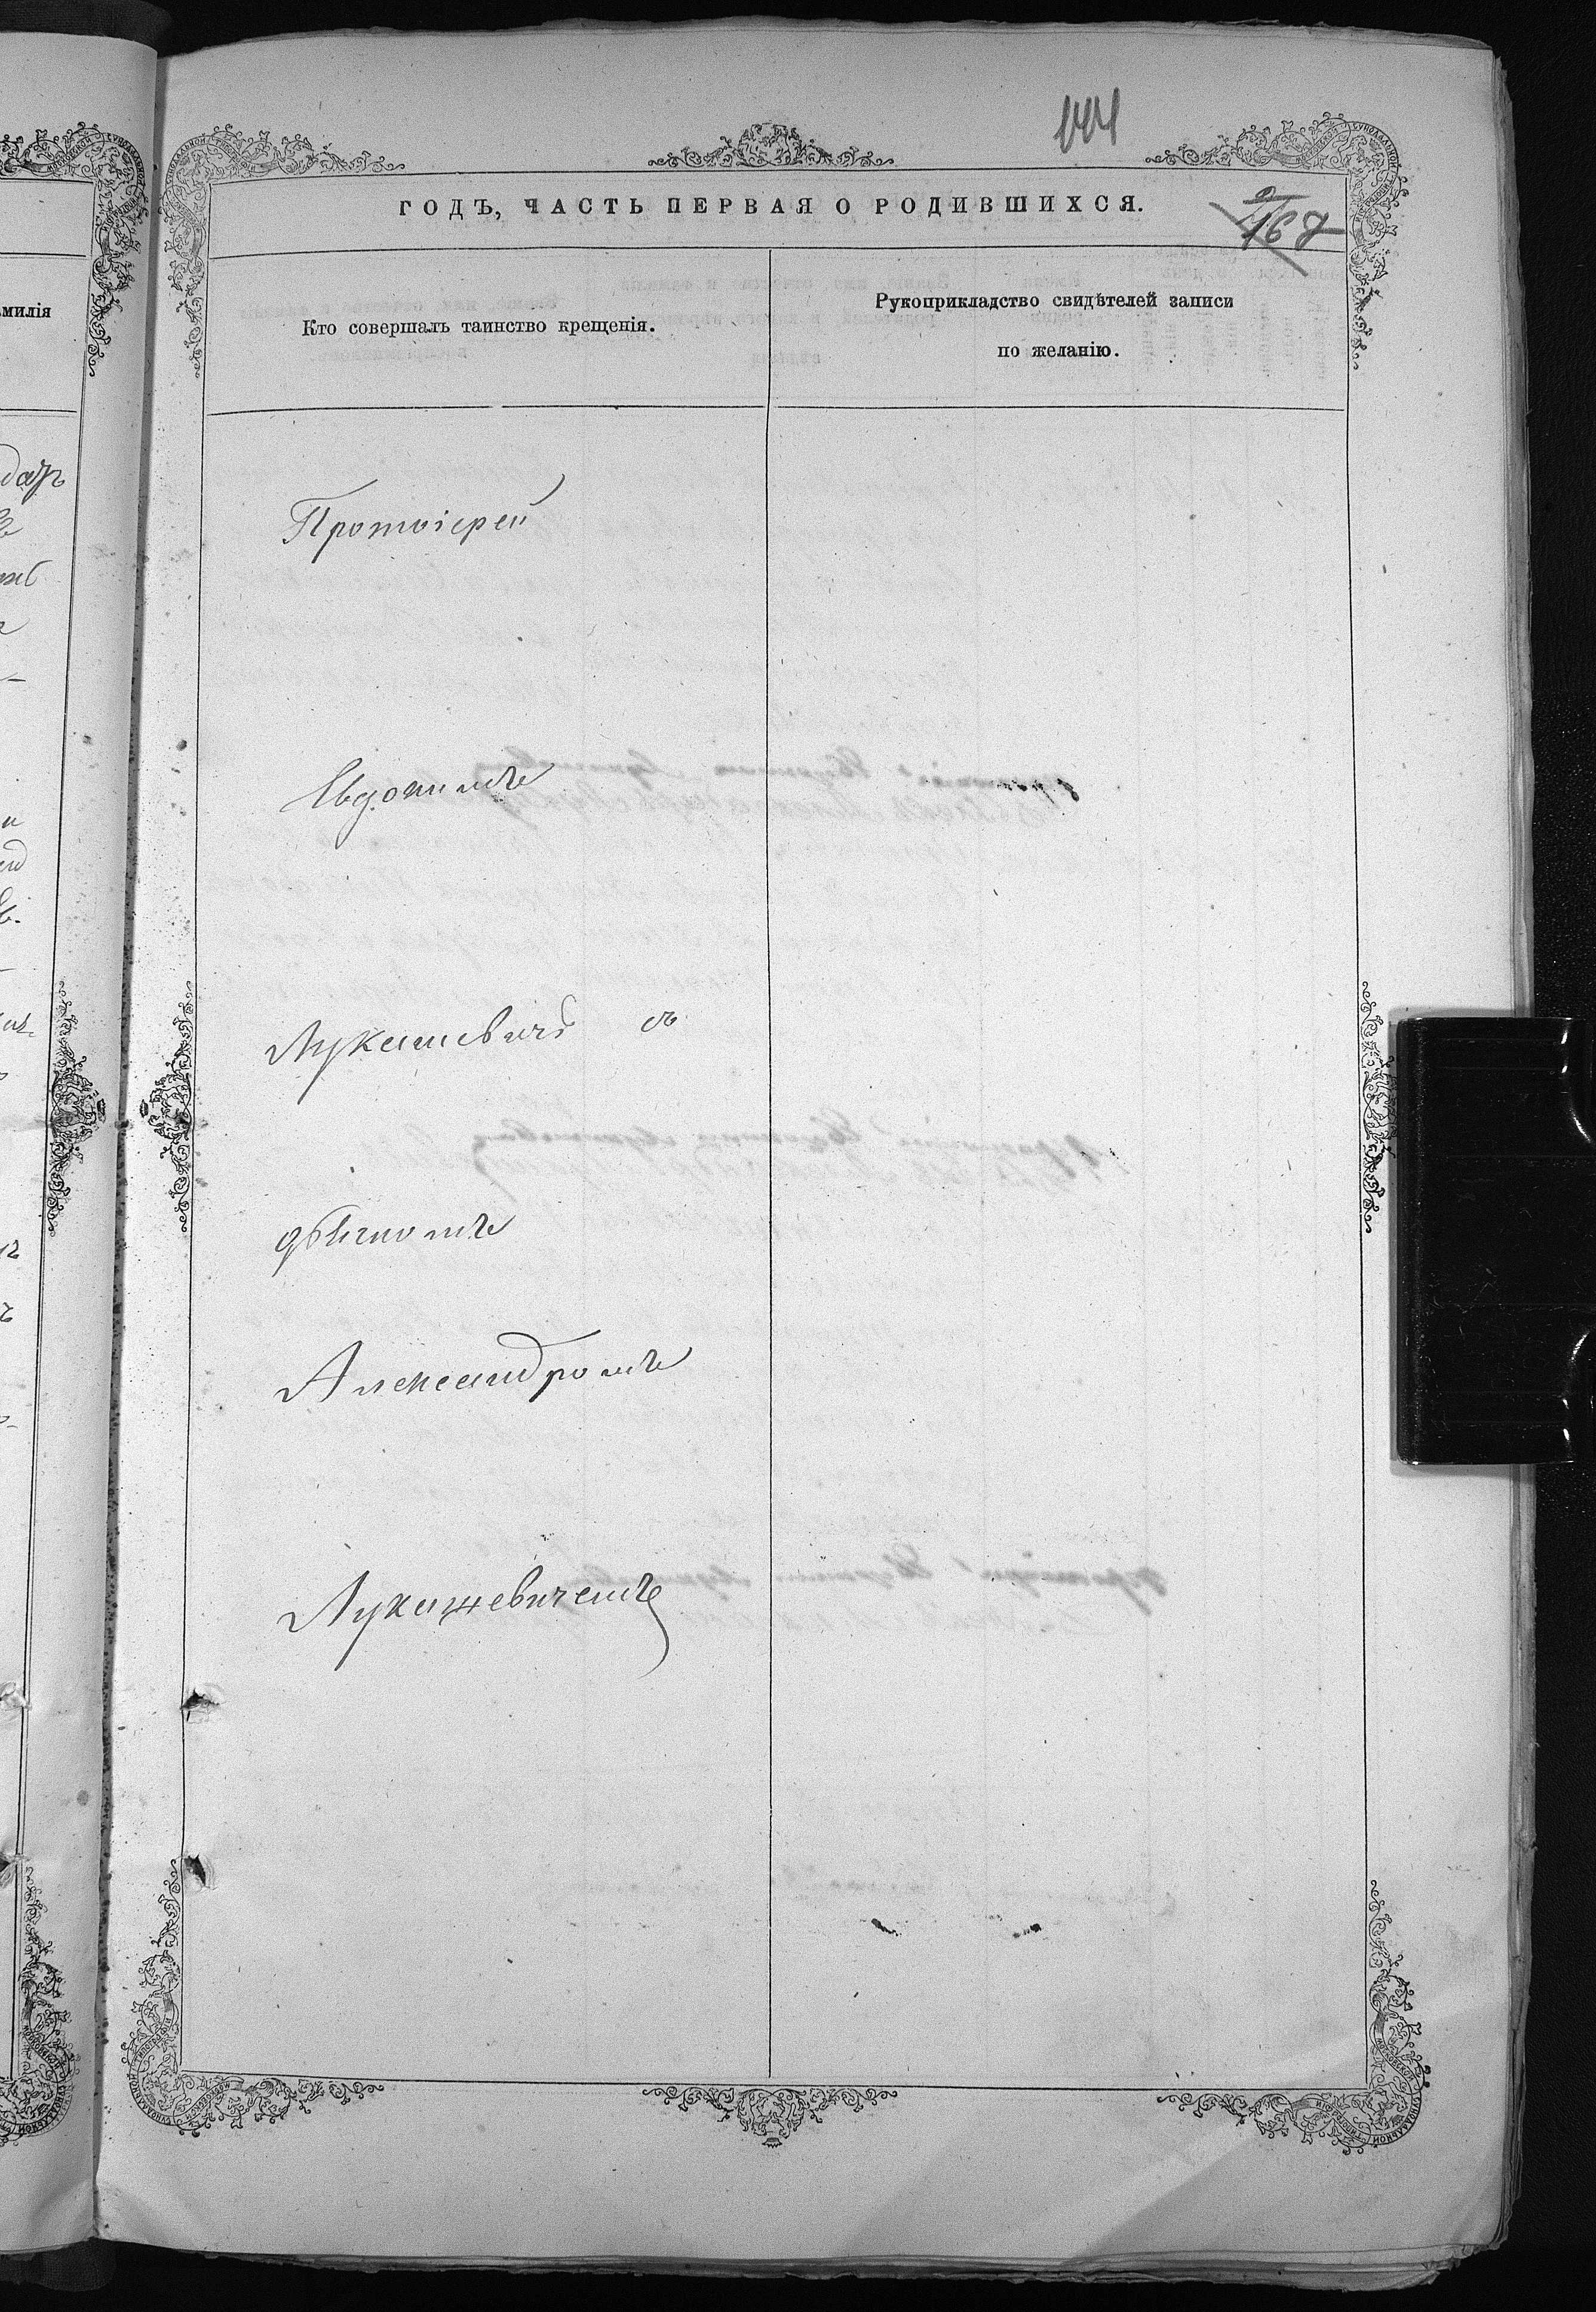 144
ГОДЪ, ЧАСТЬ ПЕРВАЯ О РОДИВШИХСЯ.
167
милія
Кто совершалъ таинство крещенія.
Рукоприкладство свидѣтелей записи
по желанію.
Протоіерей
Лукашевичъ съ
дьячкомъ
Александромъ
Лукашевичемъ